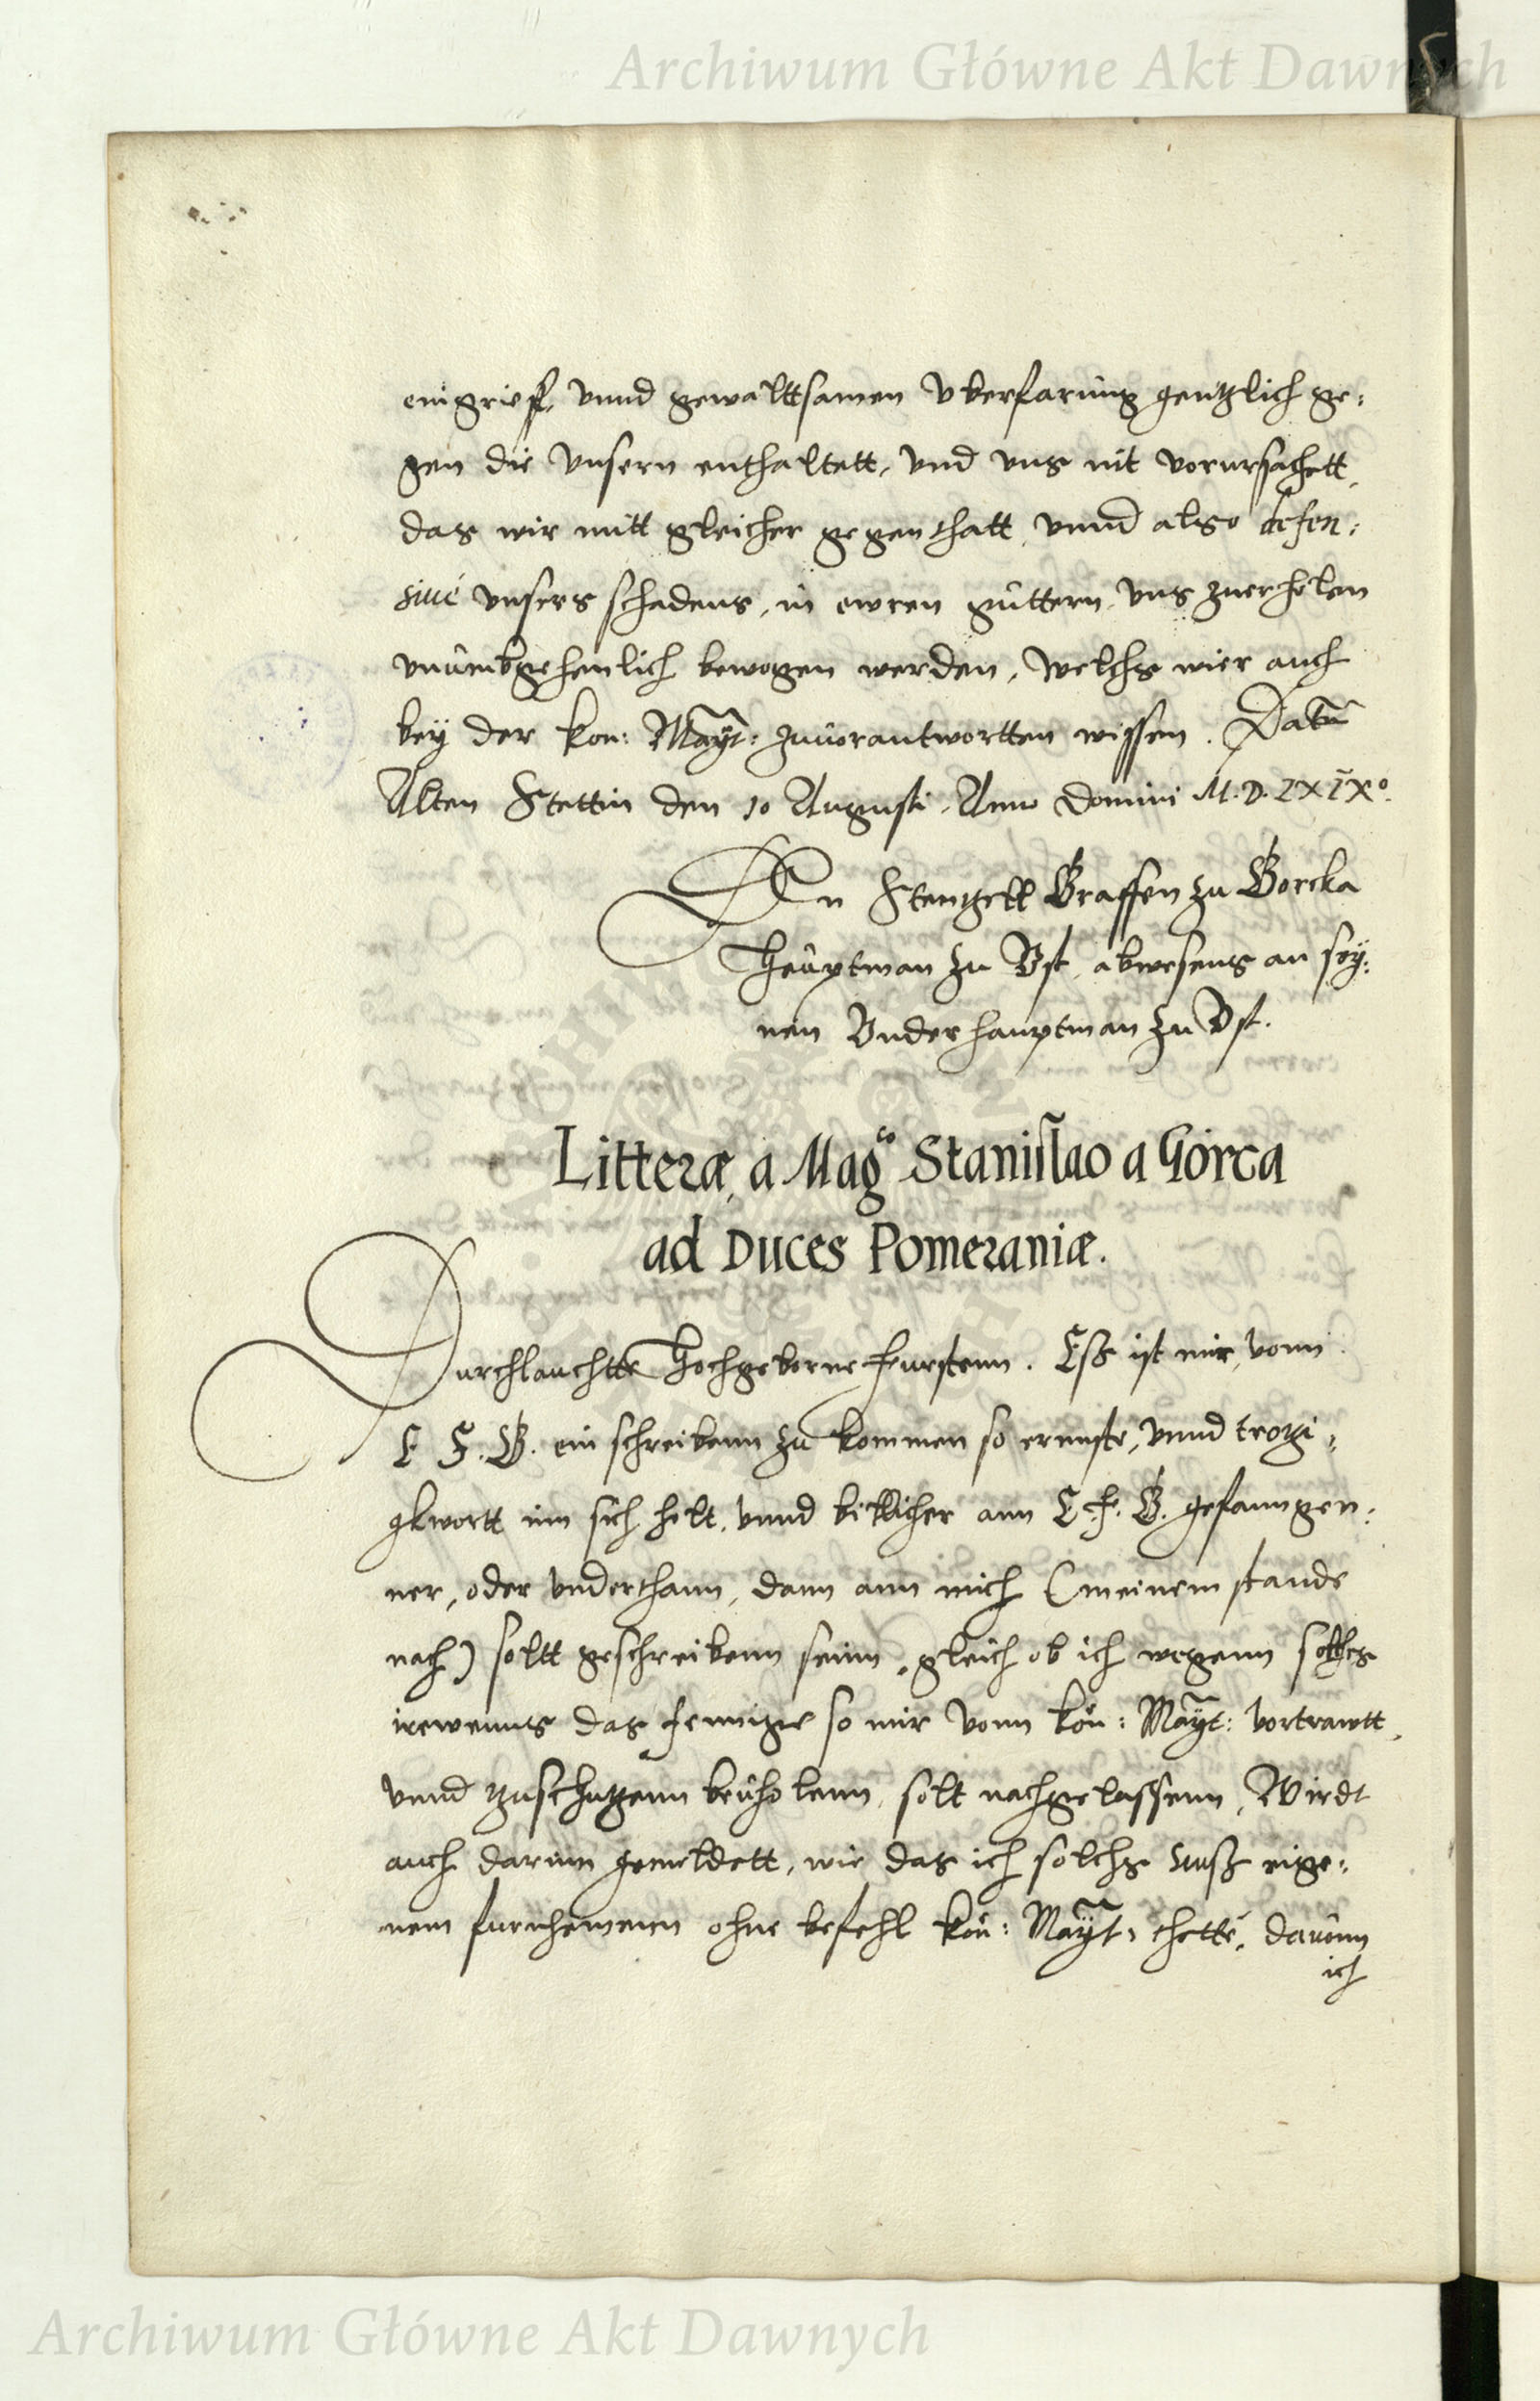 Archiwum Główne Akt Dawnych
eingrieff, vnnd gewalttsamen vberfarung gentzlich ge:
gen die Vnsern enthaltett, vnd vns nit vorursachett,
das wir mitt gleicher gegenthatt, vnnd also defen:
siué vnsers schadens, in ewren güttern, vns zuerholen
vnůmbgehenlich bewogen werden, welchs wier auch
bey der kon: Maÿt: zuuorantwortten wissen. Datũ
Alten Stettin den 10 Augusti, Anno Domini M.D.LXIXº.
An Stentzell Graffen zu Gorcka
Heüptman zu Vst, abwesens an sey:
nen Vnderhauptman zu Vst.
Litteræ, a Magco Stanislao a Górca
ad Duces Pomeraniæ.
Durchlauchtte Hochgeborne furstenn. Eß ist mir, vonn
E F. G. ein schreibenn zu kommen so ernnste, vnnd trozi:
gkwortt inn sich helt, vnnd billicher ann E. f. G. gefanngen:
ner, oder vnderthann, dann ann mich (meinem stande
nach) soltt geschreibenn seinn, gleich ob ich wegenn solches
irewenns das jennige so mir vonn kön: Maÿt: vortrawtt,
vnnd zuschutzenn beuholenn, solt nachgelassenn, Wirdt
auch darinn gemeldett, wie das ich solchs auß eige:
nem furnhemenn ohne befehl kön: Maÿt: thette, dauonn
ich
Archiwum Główne Akt Dawnych